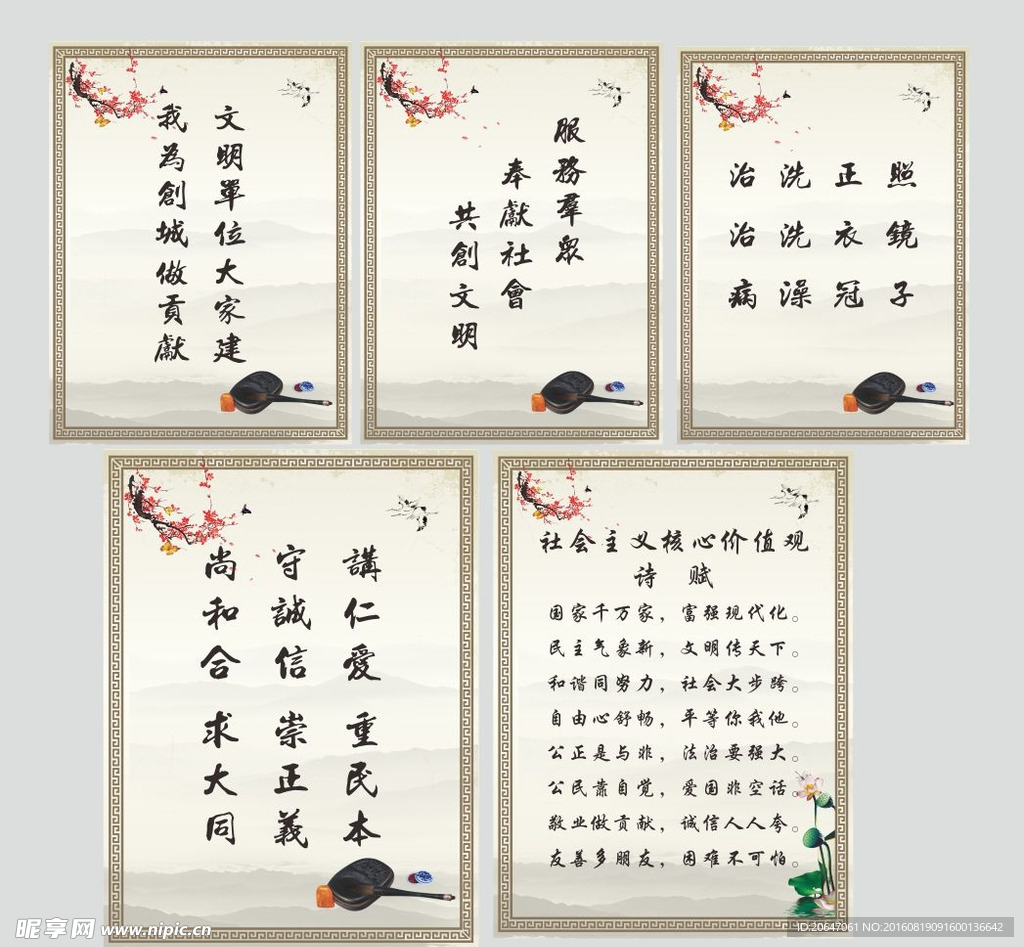 文明單位大家建
我為創城做貢獻
服務羣眾
奉獻社會
共創文明
照鏡子
正衣冠
洗洗澡
治治病
講仁愛 重民本
守誠信 崇正義
尚和合 求大同
社会主义核心价值观
诗 赋
国家千万家，富强现代化。
民主气象新，文明传天下。
和谐同努力，社会大步跨。
自由心舒畅，平等你我他。
公正是与非，法治要强大。
公民靠自觉，爱国非空话。
敬业做贡献，诚信人人夸。
友善多朋友，困难不可怕。
昵享网 www.nipic.cn
ID:20647061 NO:20160819091600136642